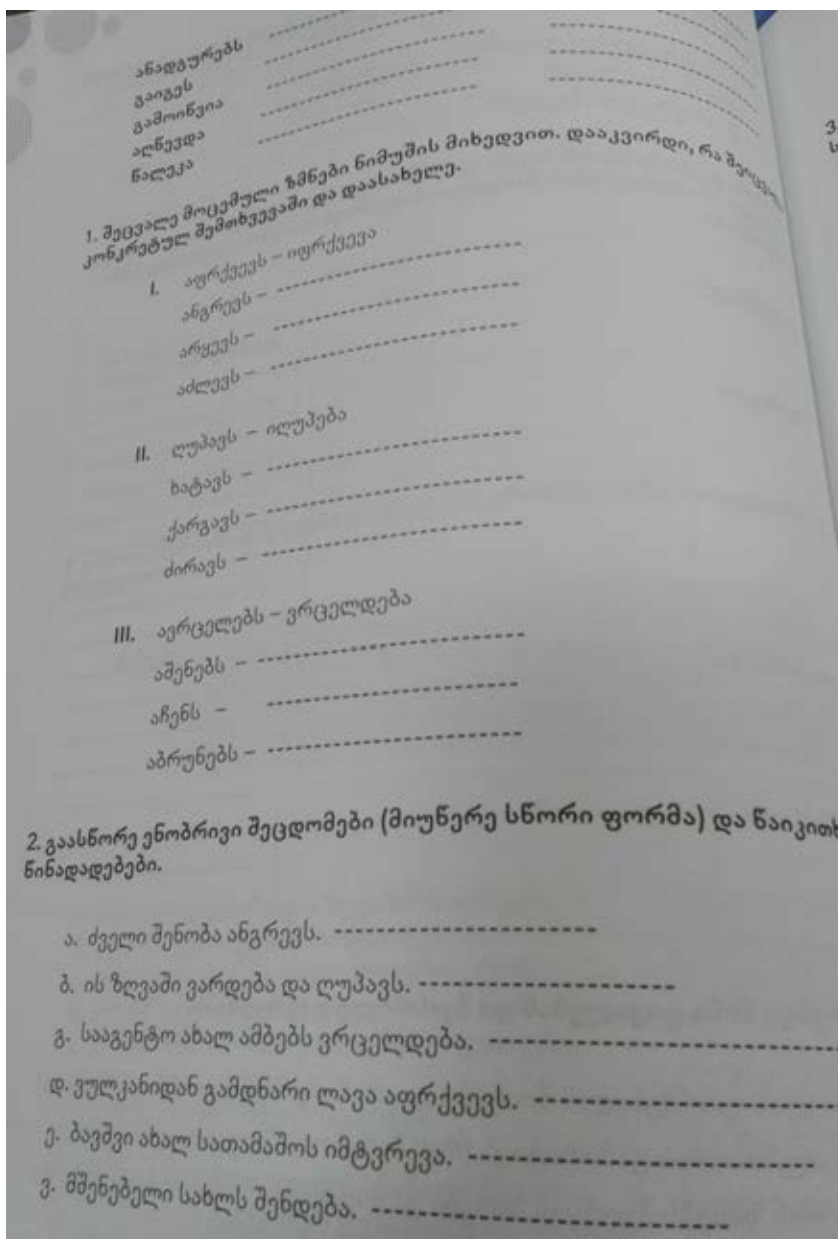 ანადგურებს ------------------------
გაიგეს ------------------------
გამოიწვია ------------------------
აღწევდა ------------------------
წალეკა
1. შეცვალე მოცემული ზმნები ნიმუშის მიხედვით. დააკვირდი, რა
კონკრეტულ შემთხვევაში და დაასახელე.
I. აფრქვევს – იფრქვევა
ანგრევს – ------------------------
არყევს – ------------------------
აძლევს – ------------------------
II. ღუპავს – იღუპება
ხატავს – ------------------------
ქარგავს – ------------------------
ძირავს – ------------------------
III. ავრცელებს – ვრცელდება
აშენებს – ------------------------
აჩენს – ------------------------
აბრუნებს – ------------------------
2. გაასწორე ენობრივი შეცდომები (მიუწერე სწორი ფორმა) და წაიკითხ
წინადადებები.
ა. ძველი შენობა ანგრევს. ------------------------
ბ. ის ზღვაში ვარდება და ღუპავს. ------------------------
გ. სააგენტო ახალ ამბებს ვრცელდება. ------------------------
დ. ვულკანიდან გამდნარი ლავა აფრქვევს. ------------------------
ე. ბავშვი ახალ სათამაშოს იმტვრევა. ------------------------
ვ. მშენებელი სახლს შენდება. ------------------------